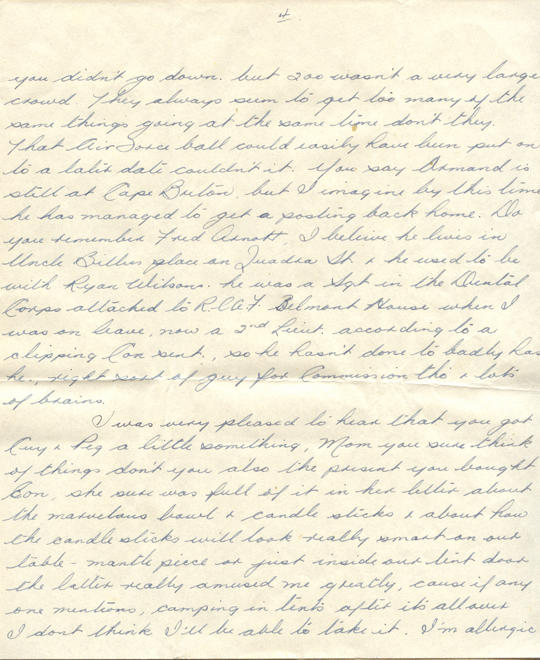 4.
you didn't go down. but 200 wasn't a very large
crowd. They always seem to get too many of the
same things going at the same time don't they.
That Air Force ball could easily have been put on
to a later date couldn't it. You say Ormand is
still at Cape Breton, but I imagine by this time
he has managed to get a posting back home. Do
you remember Fred Arnott, I believe he lives in
Uncle Billies place on Quadra St. & he used to be
with Ryan Wilsons. he was a Sgt in the Dental
Corps attached to R.C.A.F. Belmont House when I
was on leave, now a 2nd Lieut. according to a
clipping Con sent., so he hasn't done to badly has
he., right sort of guy for Commission tho & lots
of brains.
I was very pleased to hear that you got
Guy & Peg a little something, Mom you sure think
of things don't you also the present you bought
Con, she sure was full of it in her letter about
the marvelous bowl & candle sticks & about how
the candle sticks will look really smart on our
table - mantle piece or just inside our tent door
the latter really amused me greatly, cause if any
one mentions, camping in tents after its all over
I dont think I'll be able to take it. I'm allergic